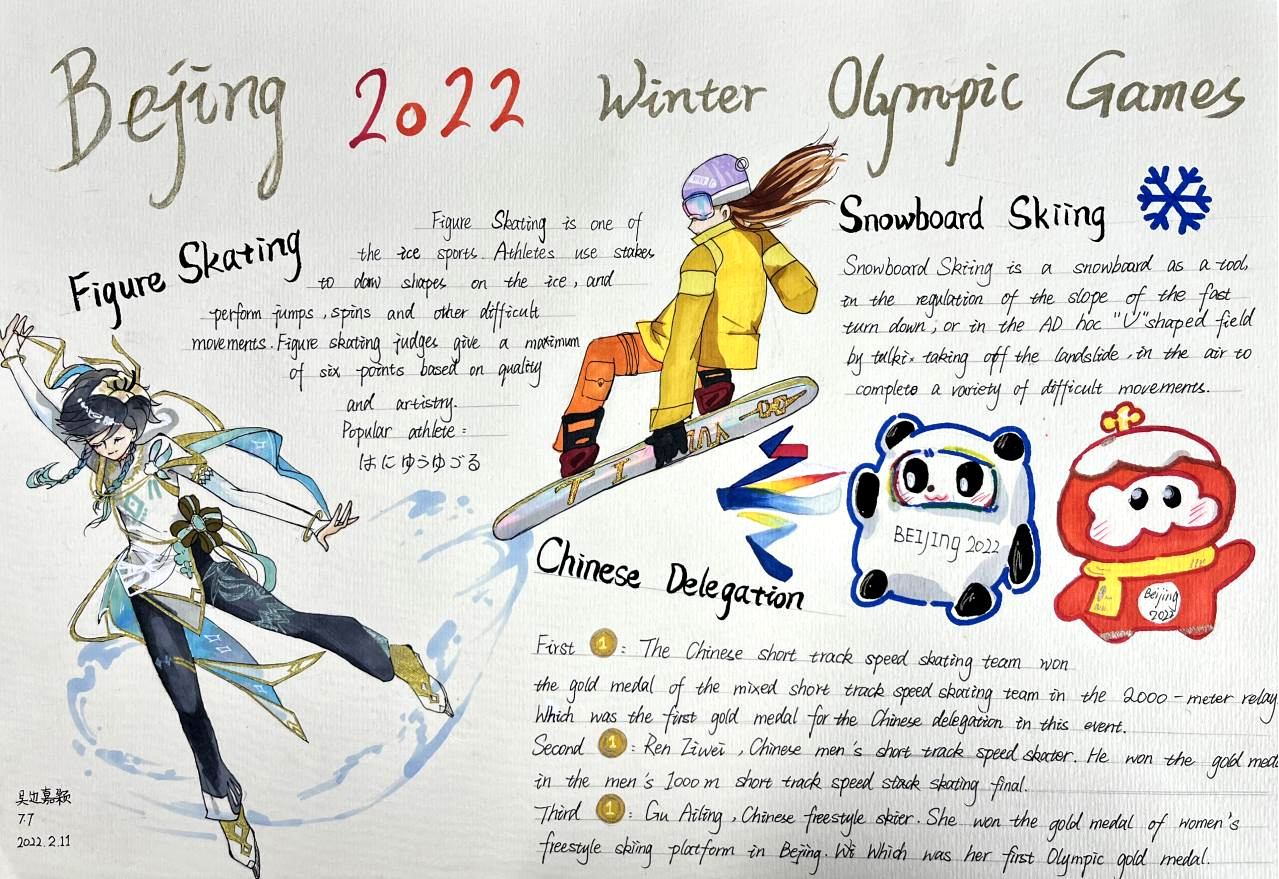 Bejing 2022 Winter Olympic Games
Figure Skating
Figure Skating is one of
the ice sports. Athletes use stakes
to daw shapes on the ice, and
perform jumps, spins and other difficult
movements. Figure skating judges give a maximum
of six points based on quality
and artistry.
Popular athlete:
はにゆうゆづる
Snowboard Skiing
Snowboard Skiing is a snowboard as a tool,
in the regulation of the slope of the fast
turn down, or in the AD hoc "U" shaped field
by taking off the landslide, in the air to
complete a variety of difficult movements.
BEIJING 2022
Beijing
2022
Chinese Delegation
First 1: The Chinese short track speed skating team won
the gold medal of the mixed short track speed skating team in the 2000-meter relay
Which was the first gold medal for the Chinese delegation in this event.
Second 1: Ren Ziwei, Chinese men's short track speed skater. He won the gold meda
in the men's 1000m short track speed skating final.
Third 1: Gu Ailing, Chinese freestyle skier. She won the gold medal of women's
freestyle skiing platform in Bejing. Which was her first Olympic gold medal.
吴边嘉颖
7.7
2022.2.11